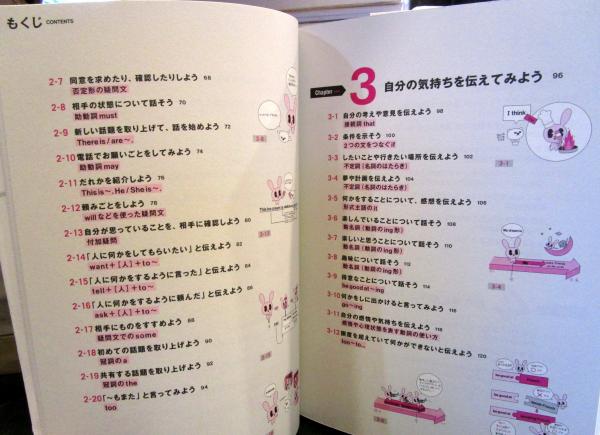 もくじ CONTENTS
2-7 同意を求めたり、確認したりしよう 68
否定形の疑問文
2-8 相手の状態について話そう 70
助動詞 must
2-9 新しい話題を取り上げて、話を始めよう 72
There is / are ~.
2-10 電話でお願いごとをしてみよう 74
助動詞 may
2-11 だれかを紹介しよう 76
This is ~. He / She is ~.
2-12 頼みごとをしよう 78
will などを使った疑問文
2-13 自分が思っていることを、相手に確認しよう 80
付加疑問
2-14 「人に何かをしてもらいたい」と伝えよう 82
want +［人］+ to ~
2-15 「人に何かをするように言った」と伝えよう 84
tell +［人］+ to ~
2-16 「人に何かをするように頼んだ」と伝えよう 86
ask +［人］+ to ~
2-17 相手にものをすすめよう 88
疑問文での some
2-18 初めての話題を取り上げよう 90
冠詞の a
2-19 共有する話題を取り上げよう 92
冠詞の the
2-20 「～もまた」と言ってみよう 94
too
Chapter
3 自分の気持ちを伝えてみよう 96
3-1 自分の考えや意見を伝えよう 98
接続詞 that
3-2 条件を示そう 100
2つの文をつなぐ if
3-3 したいことや行きたい場所を伝えよう 102
不定詞（名詞のはたらき）
3-4 夢や計画を伝えよう 104
不定詞（名詞のはたらき）
3-5 何かをすることについて、感想を伝えよう 106
形式主語の it
3-6 楽しんでいることについて話そう 108
動名詞（動詞の ing 形）
3-7 楽しいと思うことについて話そう 110
動名詞（動詞の ing 形）
3-8 趣味について話そう 112
動名詞（動詞の ing 形）
3-9 得意なことについて話そう 114
be good at ~ ing
3-10 何かをしに出かけると言ってみよう 116
go ~ ing
3-11 自分の感情や気持ちを伝えよう 118
感情や心理状態を表す動詞の使い方
3-12 限度を超えていて何かができないと伝えよう 120
too ~ to ...
I think
3-1
3-4